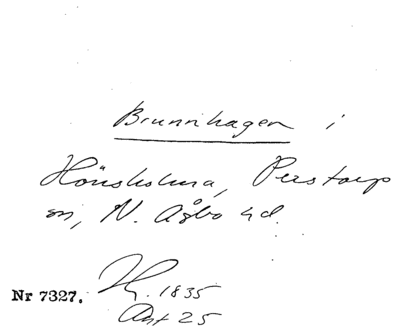 Brunnhagen i
Hönsholma, Perstorp
sn, N. Åsbo hd.
Nr 7327. Hy. 1835
Akt 25